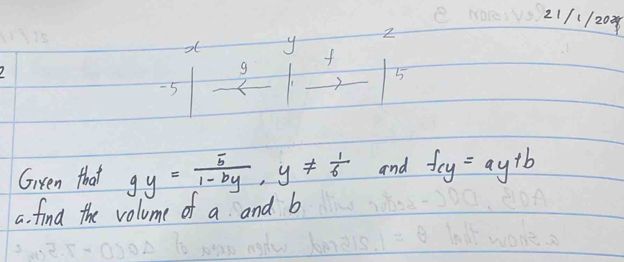 21/1/2024
x y z
2
g f
-5 5
Given that gy = 5/(1-by), y ≠ 1/6 and f(y = ay+b
a. find the volume of a and b